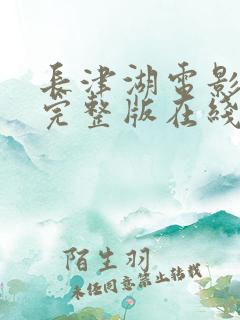 長津湖電影
完整版在綫
陌生羽
未经同意禁止转载